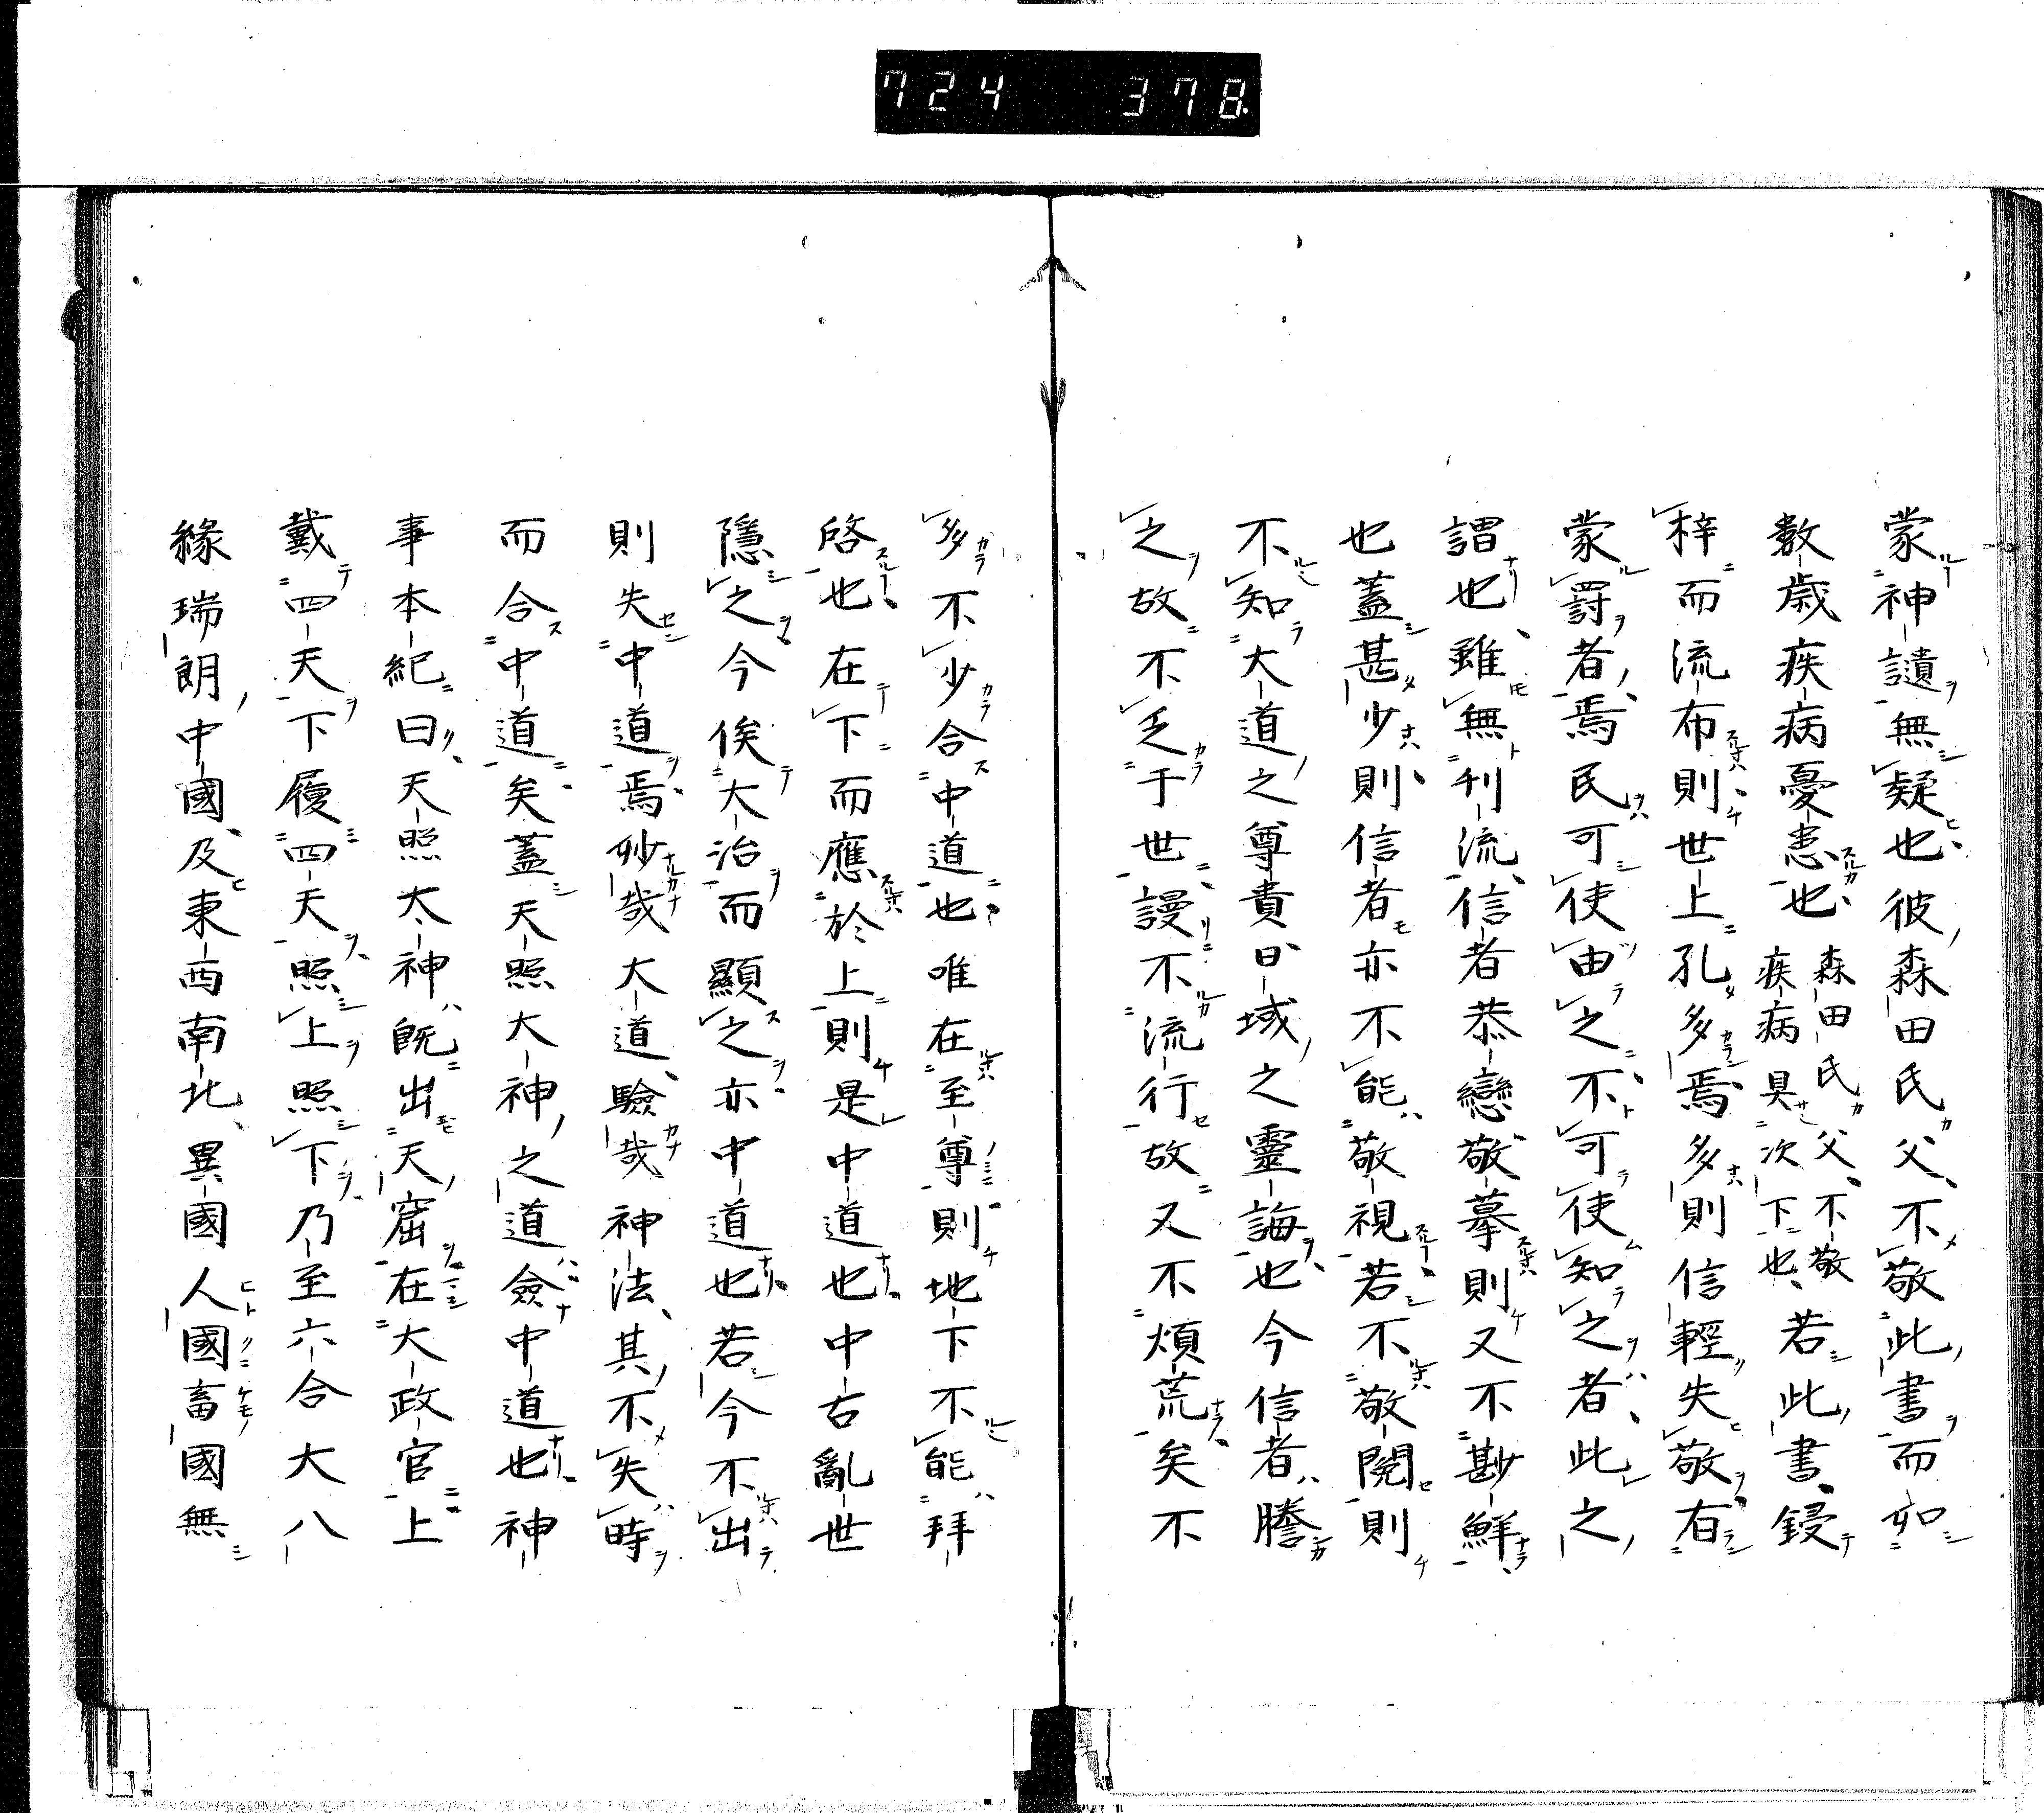 724 378
蒙神譴無疑也彼森田氏父不敬此書而如
數歳疾病憂患也森田氏父不敬疾病具次下也若此書鋟
梓而流布則世上孔多焉多則信輕失敬有
蒙罸者焉民可使由之不可使知之者此之
謂也雖無刊流信者恭戀敬摹則又不尠鮮
也蓋甚少則信者亦不能敬視若不敬閲則
不知大道之尊貴日域之靈誨也今信者謄
之故不乏于世謾不流行故又不煩荒矣不
多不少合中道也唯在至尊則地下不能拜
啓也在下而應於上則是中道也中古亂世
隱之今俟大治而顯之亦中道也若今不出
則失中道焉妙哉大道驗哉神法其不失時
而合中道矣蓋天照大神之道僉中道也神
事本紀曰天照太神既出天窟在大政官上
戴四天下履四天照上照下乃至六合大八
緣瑞朗中國及東西南北異國人國畜國無